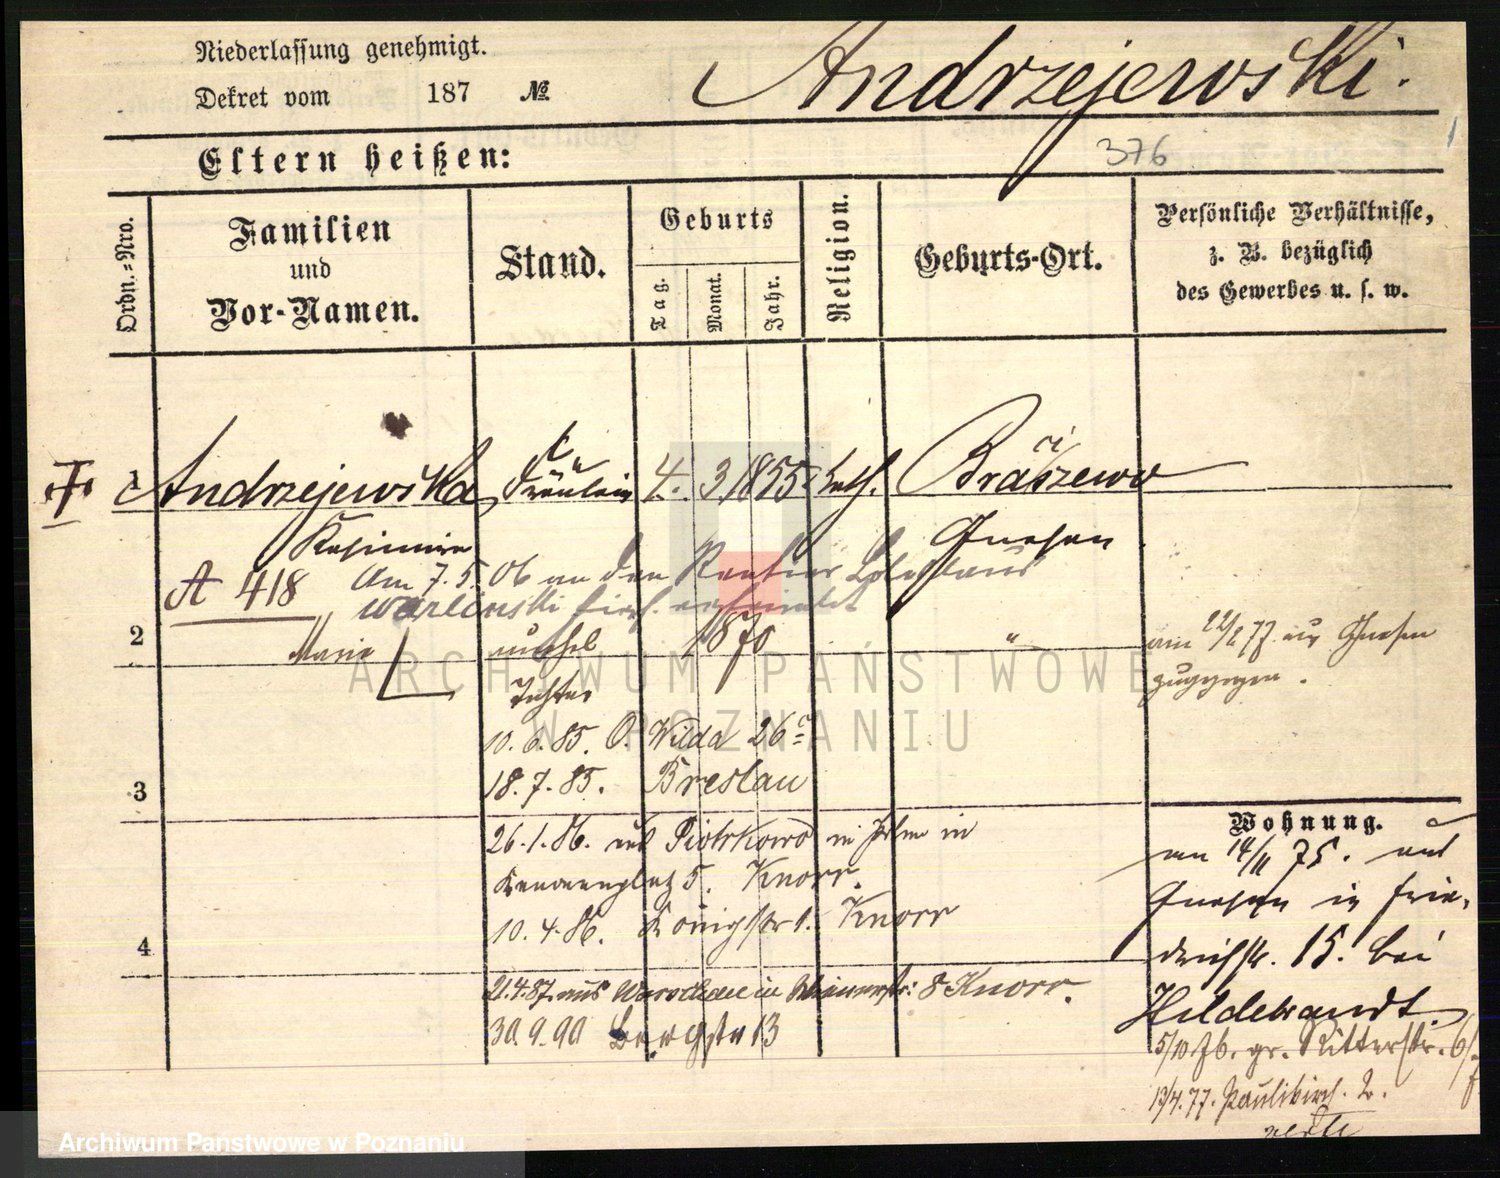 Niederlassung genehmigt.
Dekret vom 187 №
Andrzejewski.
376
1
Eltern heißen:
Ordn.=Nro.
Familien
und
Vor-Namen.
Stand.
Geburts
Tag.
Monat.
Jahr.
Religion.
Geburts-Ort.
Persönliche Verhältnisse,
z. B. bezüglich
des Gewerbes u. s. w.
1 Andrzejewska Fräulein 4. 3 1855 kath. Braciszewo
Kasimira Gnesen
A 418 Am 7.5.06 an den Rentier
Warlinski
2 Marie unehel 1870 " am 22/2 77 aus Gnesen
Tochter zugezogen.
10.6.85. O. Wilda 26c
3 18.7.85. Breslau
Wohnung.
26.1.86. aus Piotrkowo in Polen in
5. Knorr.
10.4.86. Königstr 1. Knorr
am 14/11 75. aus
Gnesen in Frie-
drichstr. 15. bei
Hildebrandt.
4
21.4.87. aus Warschau in 8 Knorr.
30.9.90 Bergstr 13
5/10 76. gr. Ritterstr. 6/7
13/4.77. Paulikirch. 2.
ARCHIWUM PAŃSTWOWE
W POZNANIU
Archiwum Państwowe w Poznaniu